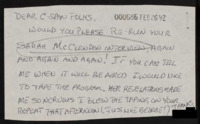 DEAR C-SPAN FOLKS,
WOULD YOU PLEASE RE-RUN YOUR
SARAH McCLENDON INTERVIEW AGAIN
AND AGAIN AND AGAIN! IF YOU CAN TELL
ME WHEN IT WILL BE AIRED I WOULD LIKE
TO TAPE THE PROGRAM. HER REVELATIONS MADE
ME SO NERVOUS I BLEW THE TAPING ON YOUR
REPEAT THAT AFTERNOON (JUST LIKE